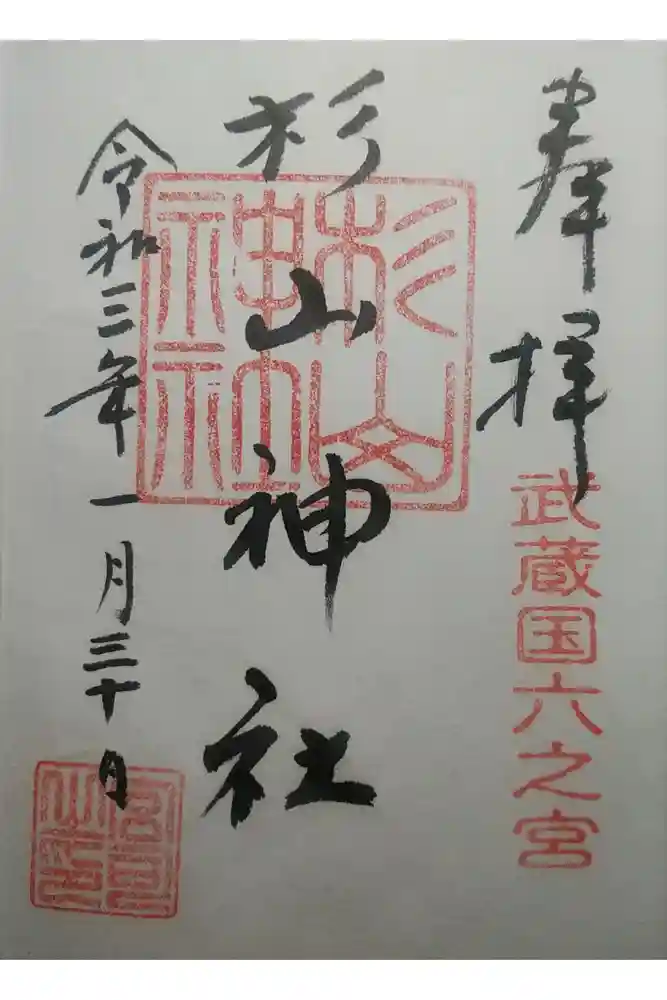 奉拝
武蔵国六之宮
杉山神社
杉山
神社
令和三年一月三十日